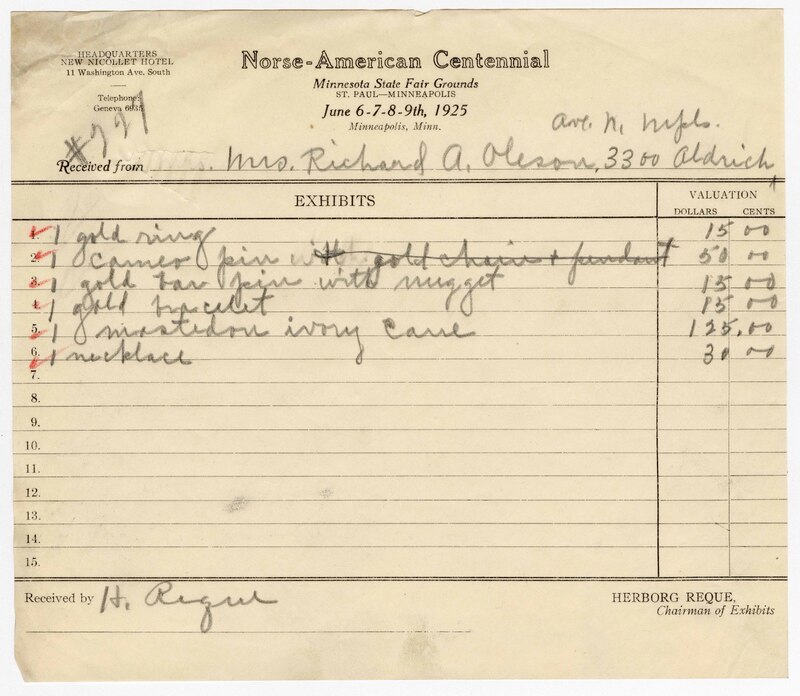 HEADQUARTERS
NEW NICOLLET HOTEL
11 Washington Ave. South
Telephone:
Geneva 6935
#721
Norse-American Centennial
Minnesota State Fair Grounds
ST. PAUL—MINNEAPOLIS
June 6-7-8-9th, 1925
Minneapolis, Minn.
Ave. N. Mpls.
Received from Mrs. Richard A. Oleson, 3300 Aldrich
EXHIBITS VALUATION
DOLLARS CENTS
1. 1 gold ring 15 00
2. 1 cameo pin with gold chain + pendant 50 00
3. 1 gold bar pin with nugget 15 00
4. 1 gold bracelet 15 00
5. 1 mastedon ivory cane 125.00
6. 1 necklace 30 00
7.
8.
9.
10.
11.
12.
13.
14.
15.
Received by H. Reque
HERBORG REQUE,
Chairman of Exhibits